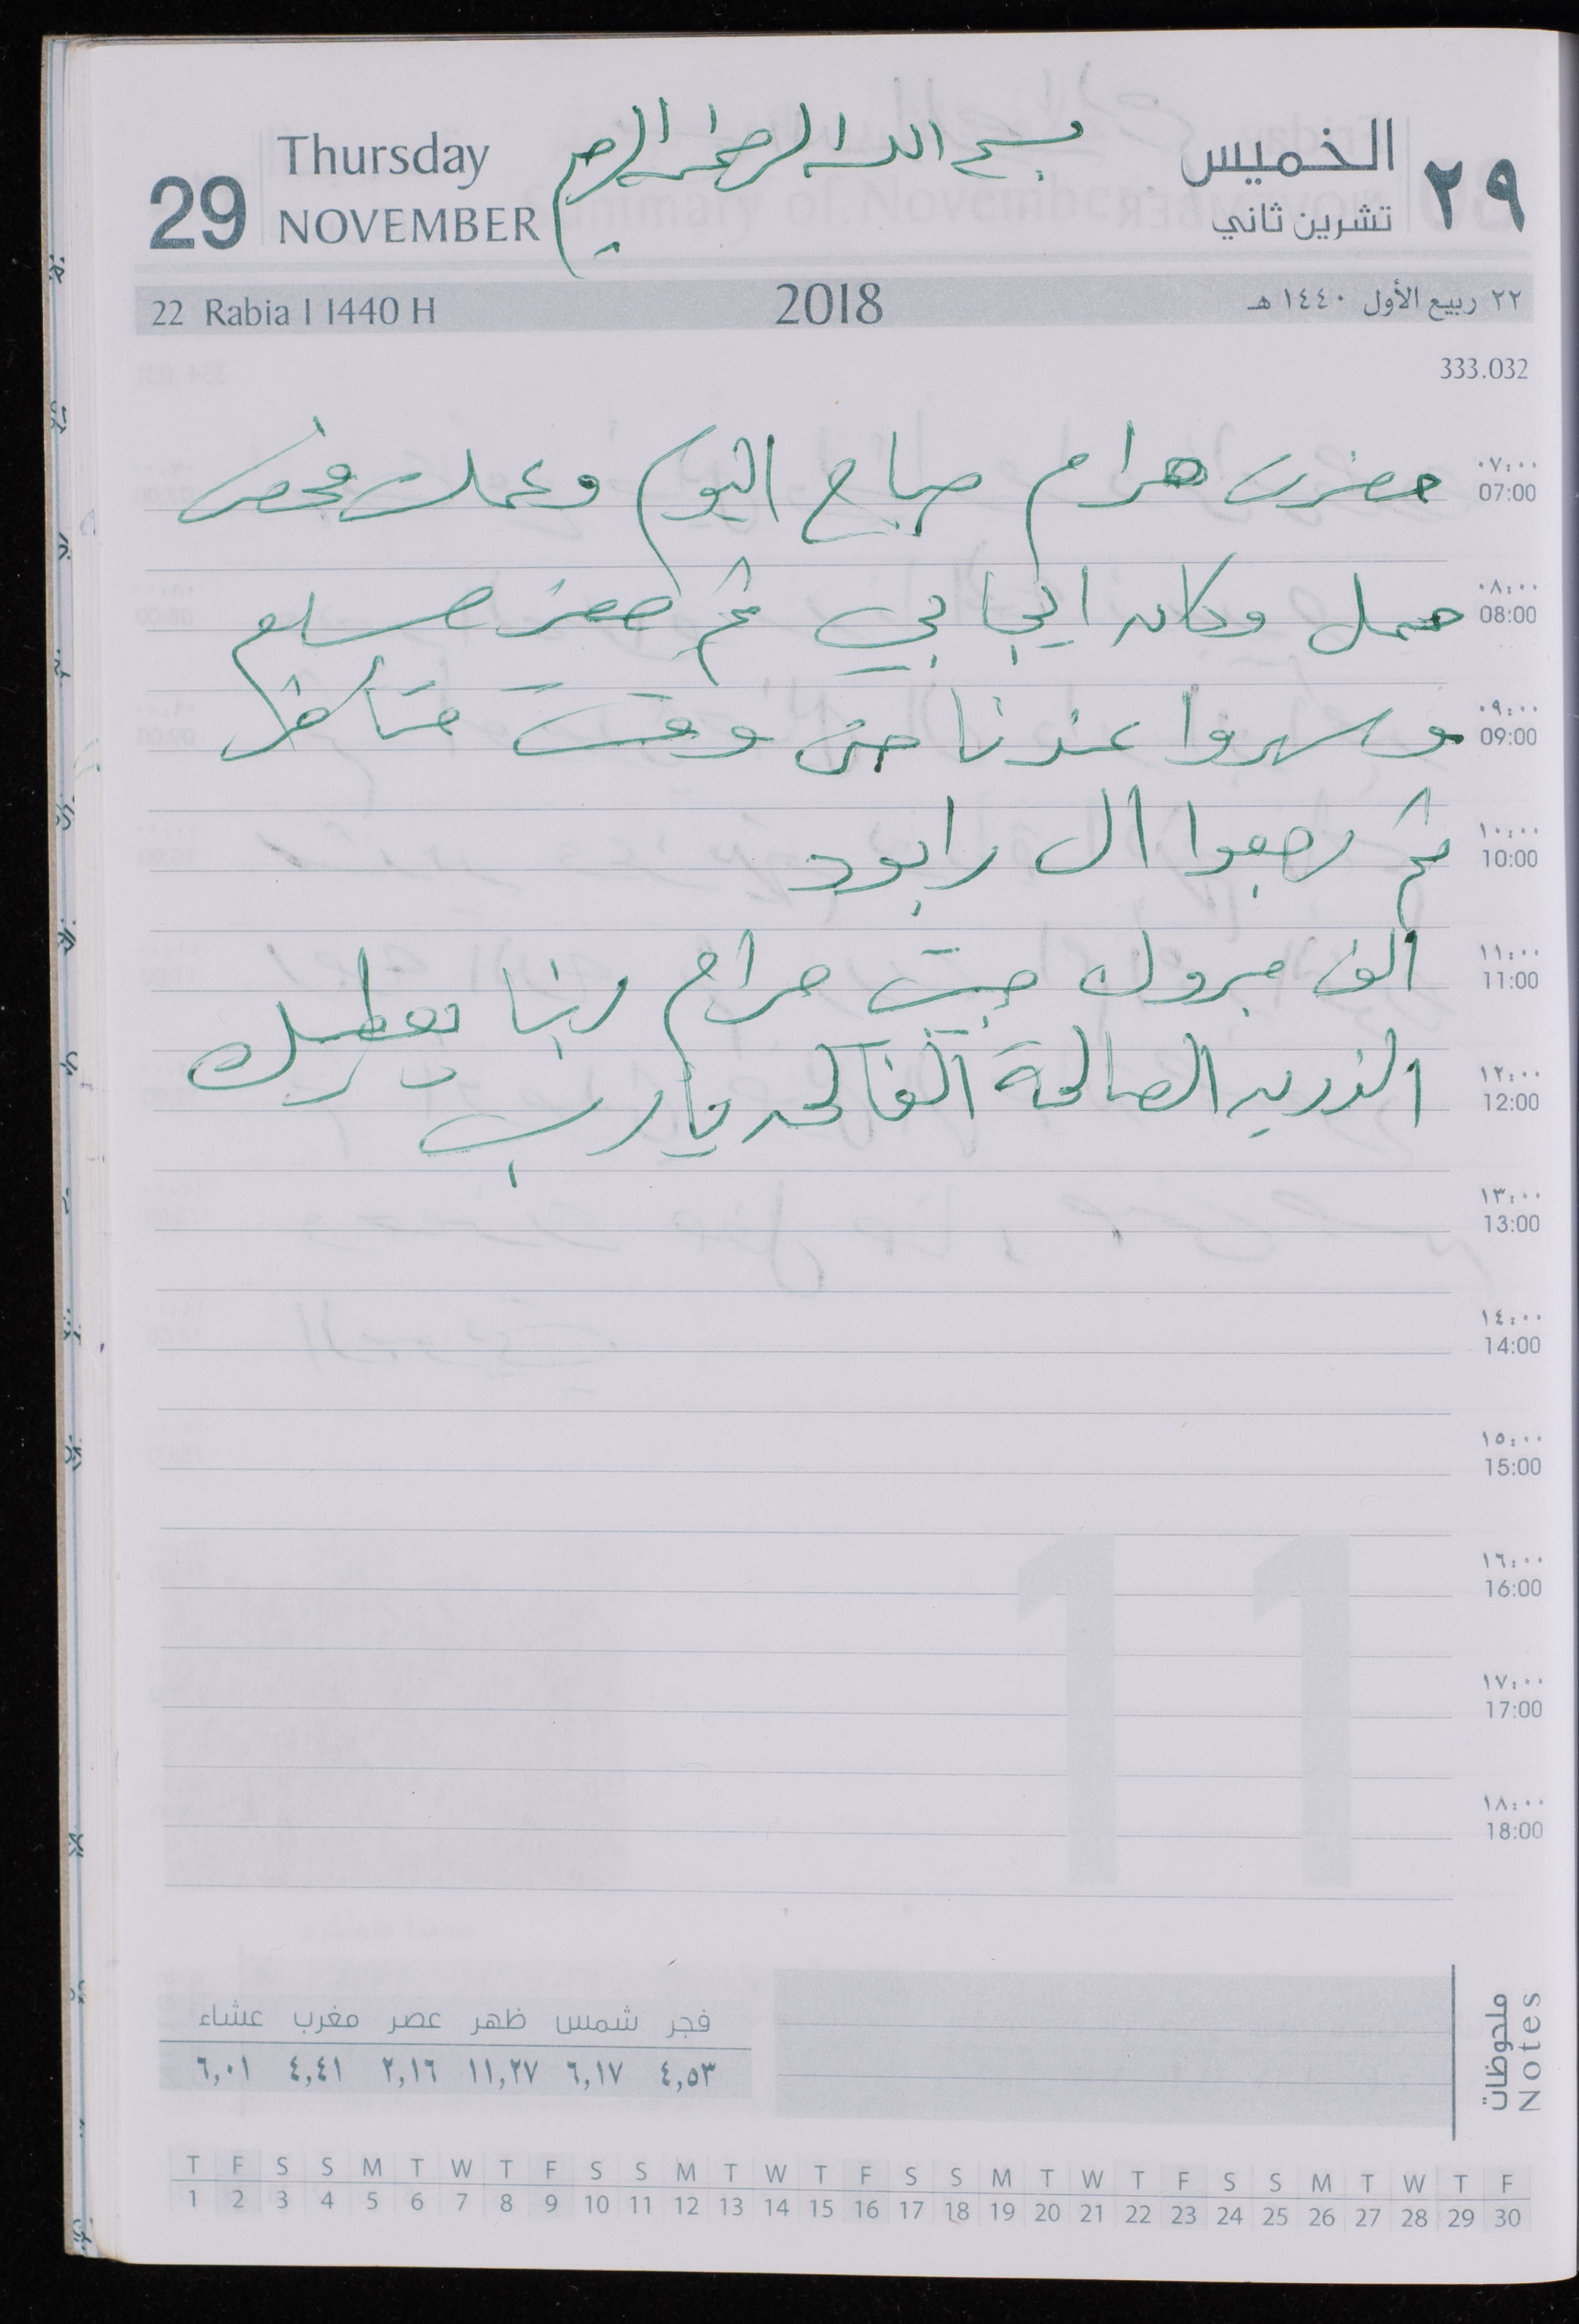 Thursday
29
NOVEMBER
بسم الله الرحمن الرحيم
الخميس
٢٩
تشرين ثاني
22 Rabia I 1440 H
2018
٢٢ ربيع الأول ١٤٤٠ هـ
333.032
٠٧:٠٠
07:00
حضرت مرام صباح اليوم وعملت فحص
٠٨:٠٠
08:00
حمل وكان ايجابي ثم حضر مسلم
٠٩:٠٠
09:00
وسهروا عندنا حتى وقت متاخر
١٠:٠٠
10:00
ثم رجعوا الى رابود
١١:٠٠
11:00
الف مبروك حبيبتي مرام ربنا يعطيك
١٢:٠٠
12:00
الذريه الصالحة الفالحه يا رب
١٣:٠٠
13:00
١٤:٠٠
14:00
١٥:٠٠
15:00
١٦:٠٠
16:00
١٧:٠٠
17:00
١٨:٠٠
18:00
11
فجر شمس ظهر عصر مغرب عشاء
٤,٥٣ ٦,١٧ ١١,٢٧ ٢,١٦ ٤,٤١ ٦,٠١
ملحوظات
Notes
T F S S M T W T F S S M T W T F S S M T W T F S S M T W T F
1 2 3 4 5 6 7 8 9 10 11 12 13 14 15 16 17 18 19 20 21 22 23 24 25 26 27 28 29 30